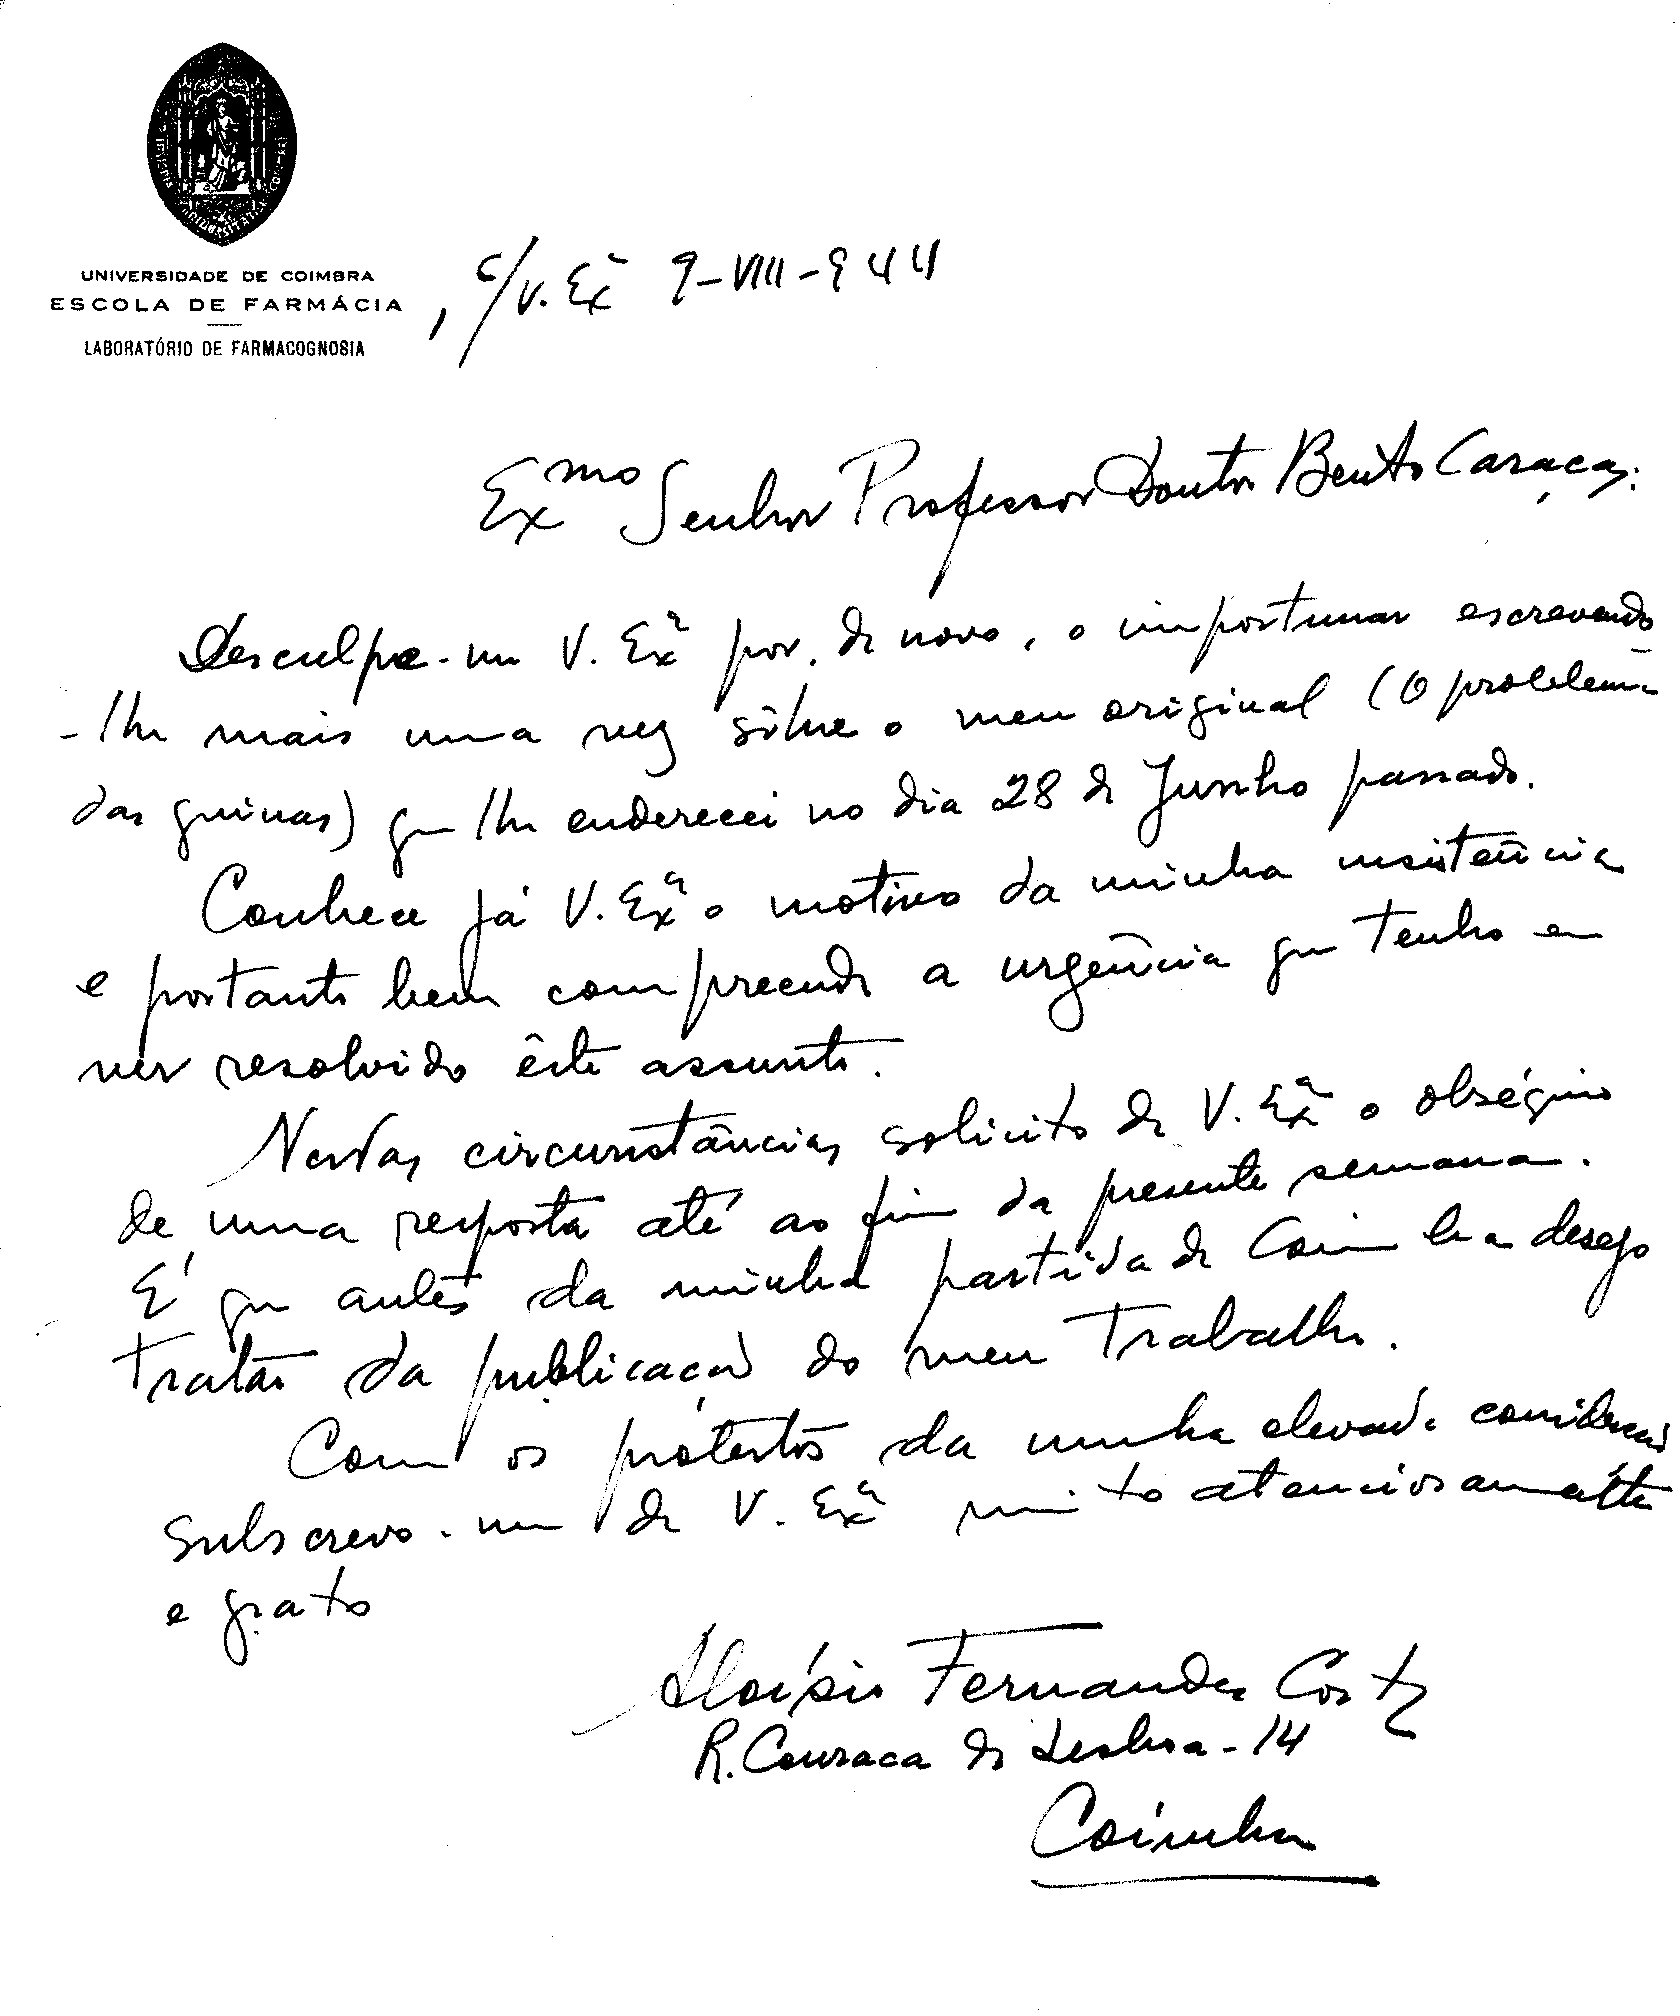 UNIVERSIDADE DE COIMBRA
ESCOLA DE FARMÁCIA
LABORATÓRIO DE FARMACOGNOSIA
, c/V. Exª 9-VIII-944
Exmo Senhor Professor Doutor Bento Caraça:
Desculpe-me V. Exª por, de novo, o importunar escrevendo
-lhe mais uma vez sôbre o meu original (O problema
das quinas) que lhe enderecei no dia 28 de Junho passado.
Conhece já V. Exª o motivo da minha insistência
e portanto bem compreende a urgência que tenho em
ver resolvido êste assunto.
Nestas circunstâncias solicito de V. Exª o obséquio
de uma resposta até ao fim da presente semana.
É que antes da minha partida de Coimbra desejo
tratar da publicação do meu trabalho.
Com os protestos da minha elevada consideração
subscrevo-me de V. Exª muito atenciosamente
e grato
Aloísio Fernandes Costa
R. Couraça de Lisboa-14
Coimbra